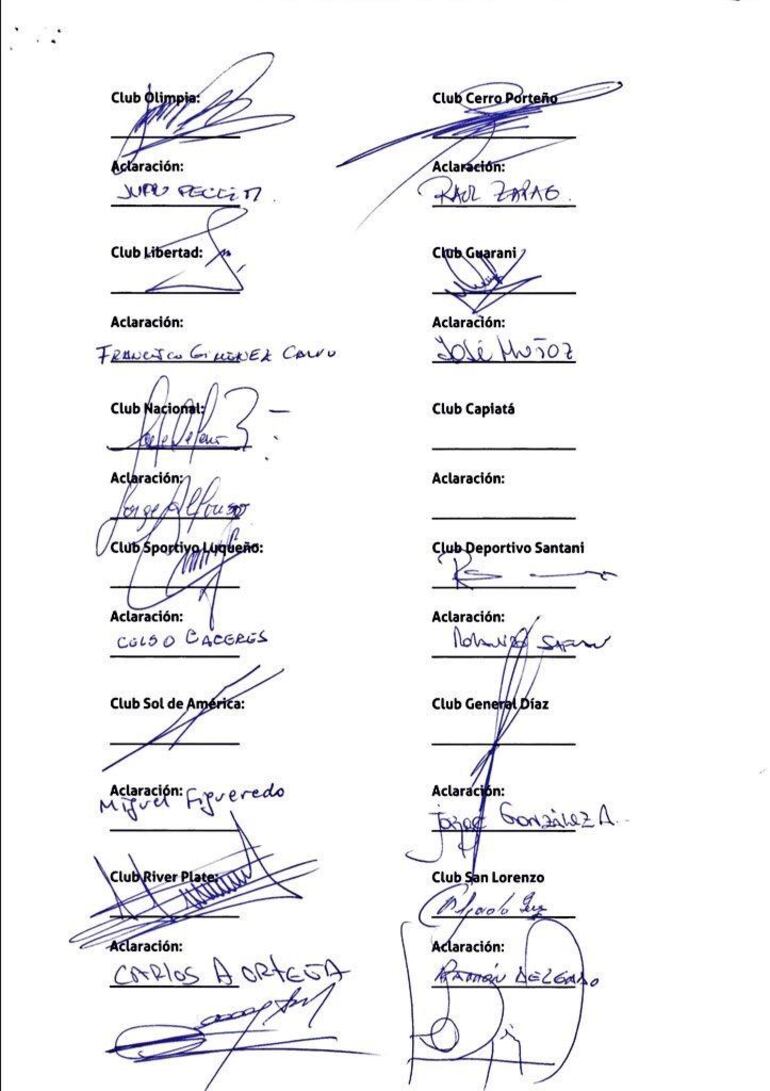 Club Olimpia:
Club Cerro Porteño
Aclaración:
Aclaración:
RAUL ZAPAG.
Club Libertad:
Club Guarani
Aclaración:
Aclaración:
FRANCISCO GIMENEZ CALVO
JOSÉ MUÑOZ
Club Nacional:
Club Capiatá
Aclaración:
Aclaración:
Jorge Alfonso
Club Sportivo Luqueño:
Club Deportivo Santani
Aclaración:
Aclaración:
CELSO CACERES
Club Sol de América:
Club General Díaz
Aclaración:
Aclaración:
Miguel Figueredo
Jorge González A.
Club River Plate:
Club San Lorenzo
Aclaración:
Aclaración:
CARLOS A ORTEGA
RAMÓN DELGADO